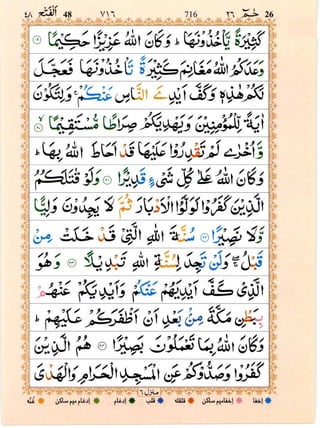 ٤٨ اَلْفَتْح 48 ٧١٦ 716 ٢٦ حٰمٓ 26
كَثِيْرَةً يَّاْخُذُوْنَهَا ؕ وَكَانَ اللّٰهُ عَزِيْزًا حَكِيْمًا ﴿۱۹﴾
وَعَدَكُمُ اللّٰهُ مَغَانِمَ كَثِيْرَةً تَاْخُذُوْنَهَا فَعَجَّلَ
لَكُمْ هٰذِهٖ وَكَفَّ اَيْدِيَ النَّاسِ عَنْكُمْ ۚ وَلِتَكُوْنَ
اٰيَةً لِّلْمُؤْمِنِيْنَ وَيَهْدِيَكُمْ صِرَاطًا مُّسْتَقِيْمًا ﴿۲۰﴾
وَّاُخْرٰى لَمْ تَقْدِرُوْا عَلَيْهَا قَدْ اَحَاطَ اللّٰهُ بِهَا ؕ
وَكَانَ اللّٰهُ عَلٰى كُلِّ شَيْءٍ قَدِيْرًا ﴿۲۱﴾ وَلَوْ قٰتَلَكُمُ
الَّذِيْنَ كَفَرُوْا لَوَلَّوُا الْاَدْبَارَ ثُمَّ لَا يَجِدُوْنَ وَلِيًّا
وَّلَا نَصِيْرًا ﴿۲۲﴾ سُنَّةَ اللّٰهِ الَّتِيْ قَدْ خَلَتْ مِنْ
قَبْلُ ۖ وَلَنْ تَجِدَ لِسُنَّةِ اللّٰهِ تَبْدِيْلًا ﴿۲۳﴾ وَهُوَ
الَّذِيْ كَفَّ اَيْدِيَهُمْ عَنْكُمْ وَاَيْدِيَكُمْ عَنْهُمْ
بِبَطْنِ مَكَّةَ مِنْۢ بَعْدِ اَنْ اَظْفَرَكُمْ عَلَيْهِمْ ؕ
وَكَانَ اللّٰهُ بِمَا تَعْمَلُوْنَ بَصِيْرًا ﴿۲۴﴾ هُمُ الَّذِيْنَ
كَفَرُوْا وَصَدُّوْكُمْ عَنِ الْمَسْجِدِ الْحَرَامِ وَالْهَدْيَ
منزل ٦
اِخفا اِخفامیم ساکن قلقله قلب اِدغام اِدغام میم ساکن غنّه